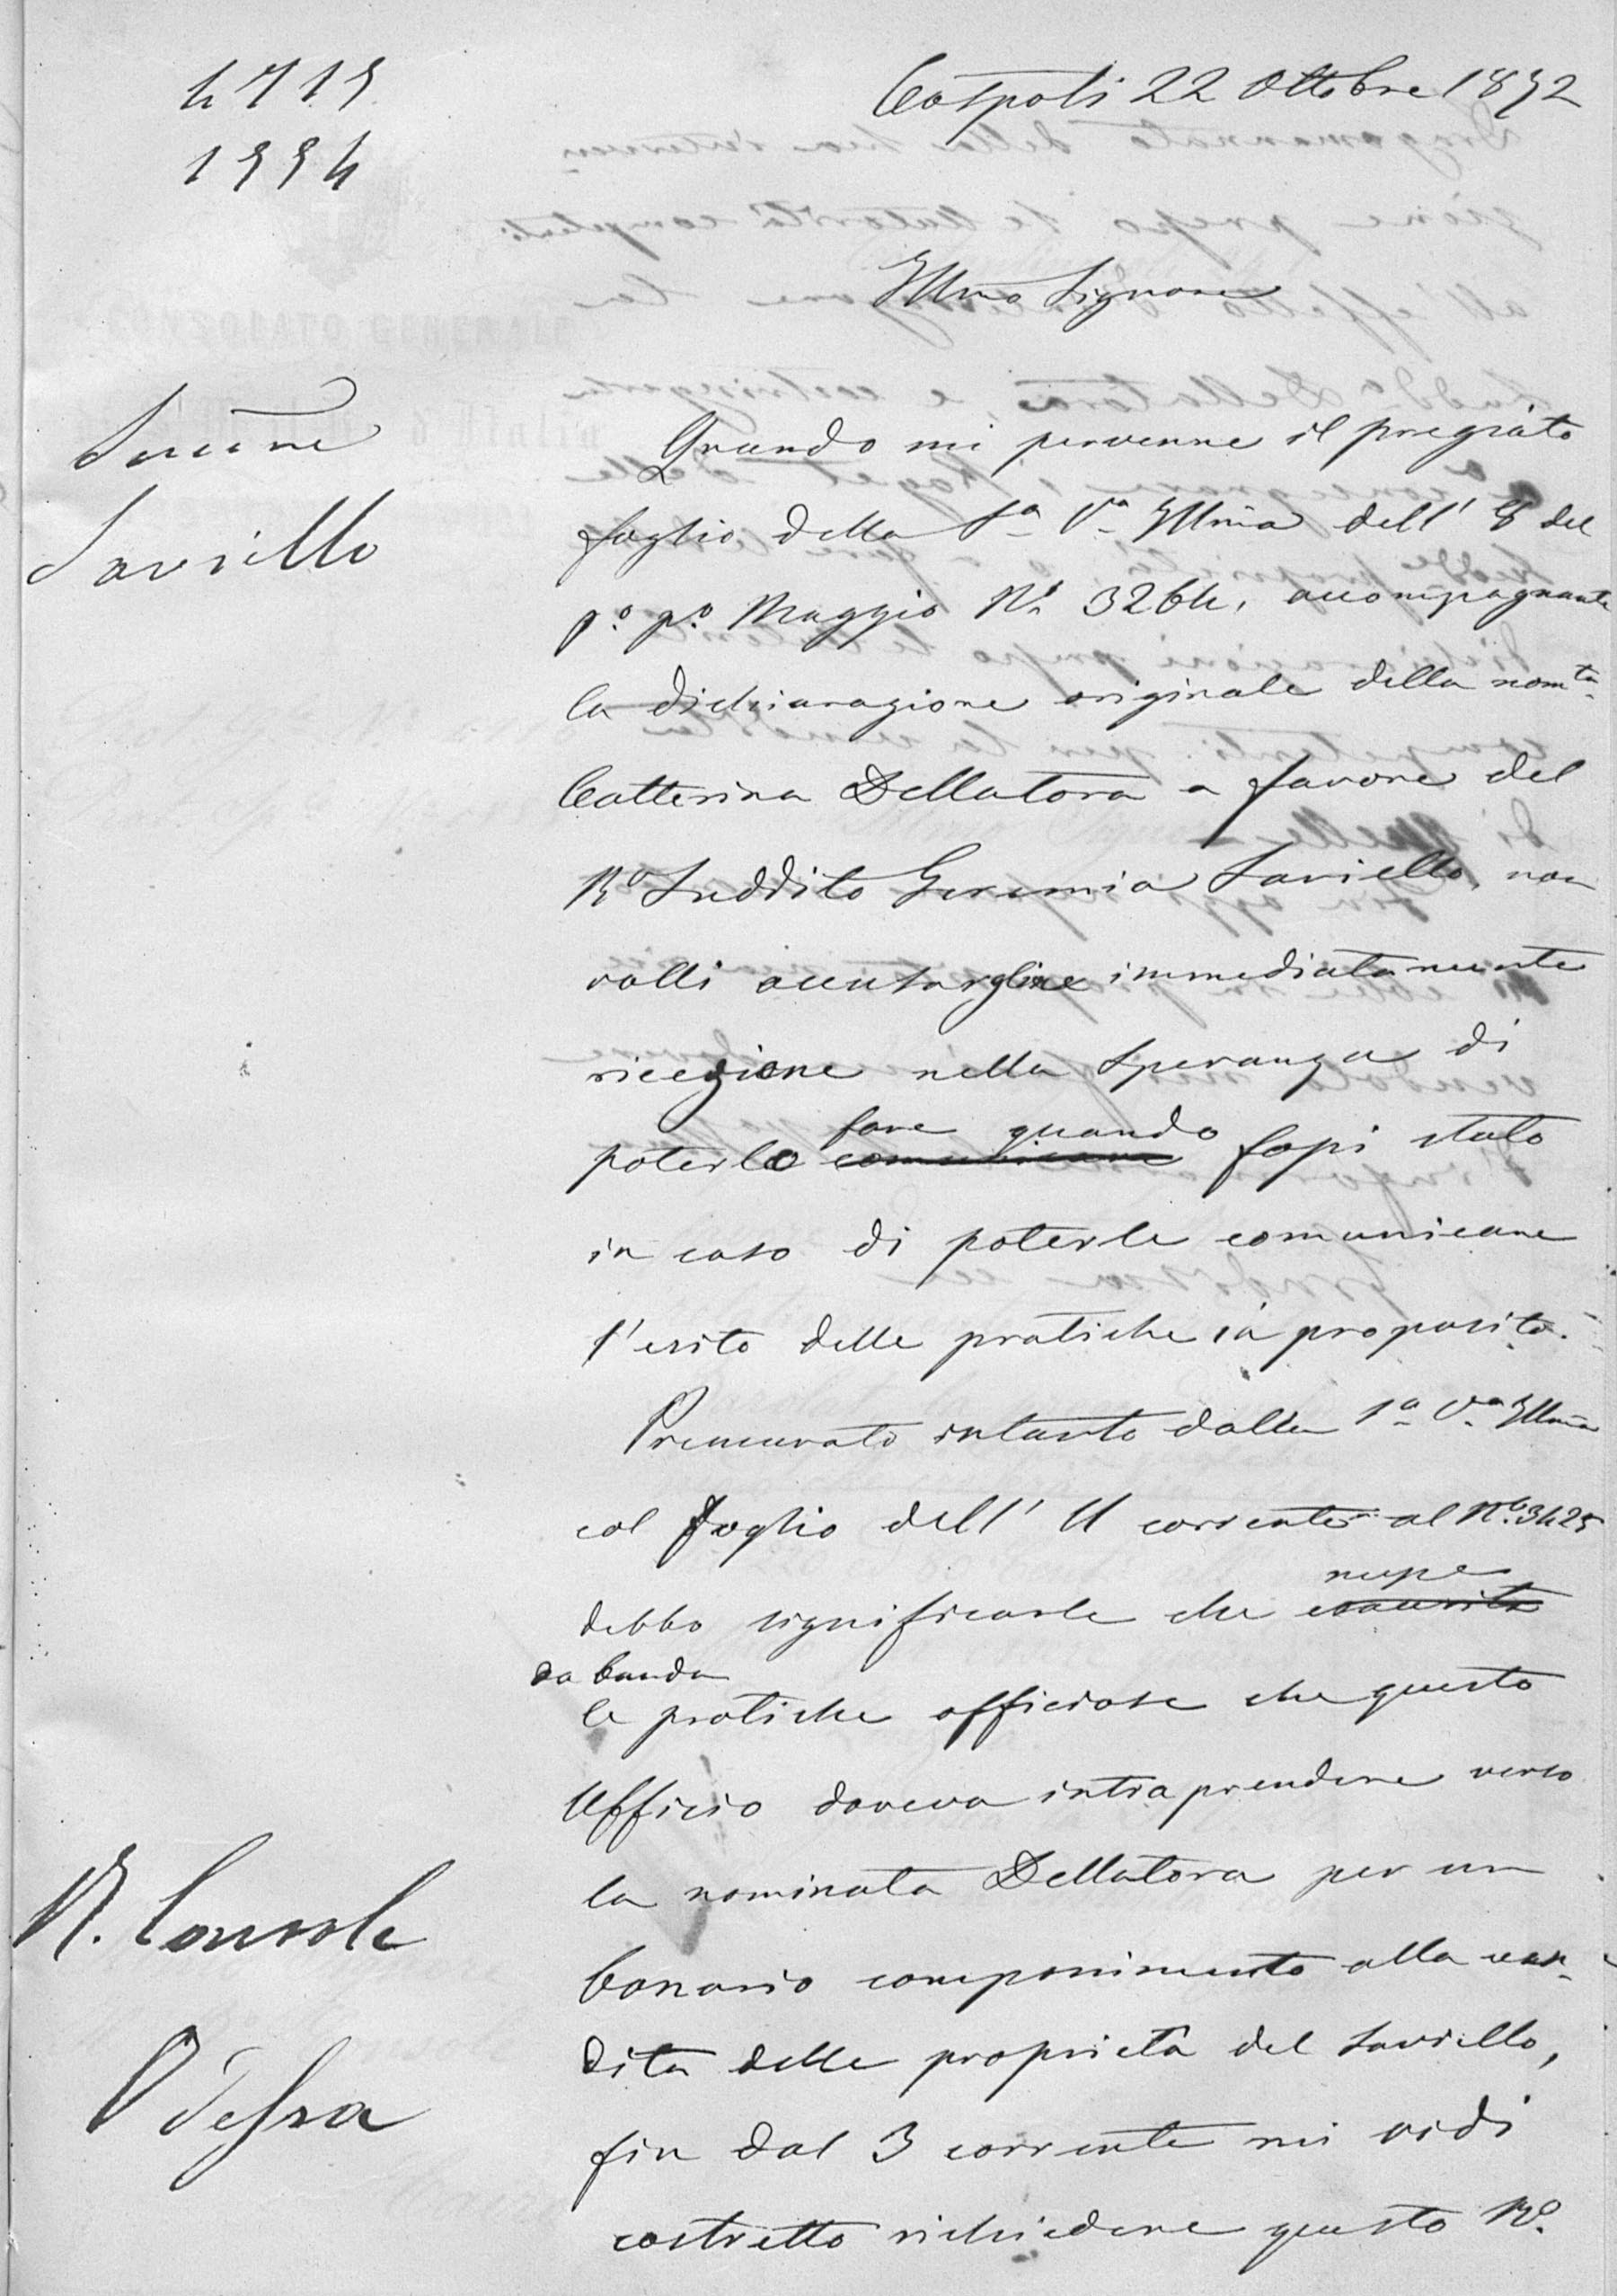 4719
1994
Costpoli 22 Ottobre 1892
Illmo Signore
Saviello
Quando mi pervenne il pregiato
foglio della Sa Va Illma dell' 8 del
po po Maggio No 3264, accompagnante
la dichiarazione originale della nomta
Catterina Dellatora a favore del
Ro Suddito Geremia Saviello, non
volli accusargline immediatamente
ricezione nella speranza di
fare quando
poterlo comunicare fossi stato
in caso di poterle comunicare
l'esito delle pratiche in proposito.
Premurato intanto dalla Sa Va Illma
col foglio dell' 11 corrente al No 3425
messe
debbo significarle che esaurite
da banda
le pratiche officiose che questo
Ufficio doveva intraprendere verso
la nominata Dellatora per un
bonario componimento alla ven-
dita delle proprietà del Saviello,
fin dal 3 corrente mi vidi
costretto richiedere questo Ro
R. Console
Odessa